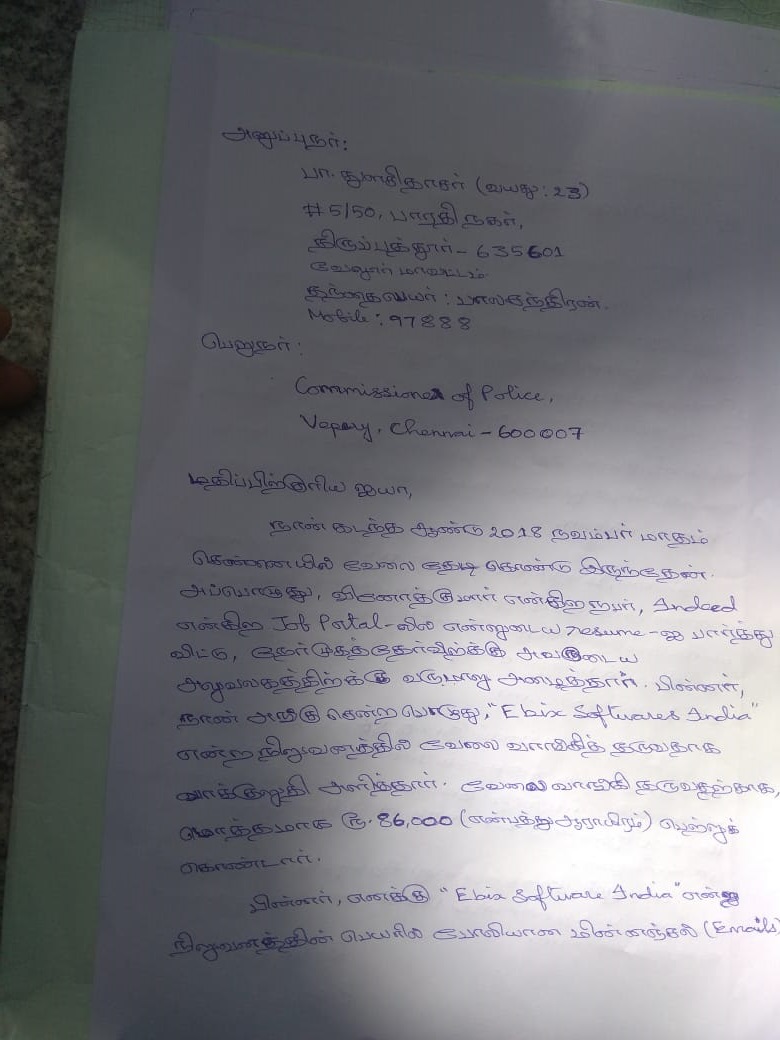 அனுப்புநர்:
பா. துளசிதாசர் (வயது: 23)
#5/50, பாரதி நகர்,
திருப்பத்தூர் - 635601
வேலூர் மாவட்டம்
தந்தைபெயர்: பாலசந்திரன்.
Mobile: 97888
பெறுநர்:
Commissioner of Police,
Vepery, Chennai - 600007
மதிப்பிற்குரிய ஐயா,
நான் கடந்த ஆண்டு 2018 நவம்பர் மாதம்
சென்னையில் வேலை தேடி கொண்டு இருந்தேன்.
அப்பொழுது, வினோத்குமார் என்கிற நபர், Indeed
என்கிற Job Portal-லில் என்னுடைய resume-ஐ பார்த்து
விட்டு, நேர்முகத்தேர்விற்க்கு அவருடைய
அலுவலகத்திற்க்கு வருமாறு அழைத்தார். பின்னர்,
நான் அங்கு சென்ற பொழுது, "Ebix Softwares India"
என்ற நிறுவனத்தில் வேலை வாங்கித் தருவதாக
வாக்குறுதி அளித்தார். வேலை வாங்கி தருவதற்காக,
மொத்தமாக ரூ. 86,000 (எண்பத்து ஆராயிரம்) பெற்றுக்
கொண்டார்.
பின்னர், எனக்கு "Ebix Software India" என்ற
நிறுவனத்தின் பெயரில் போலியான மின்னஞ்சல் (Emails)